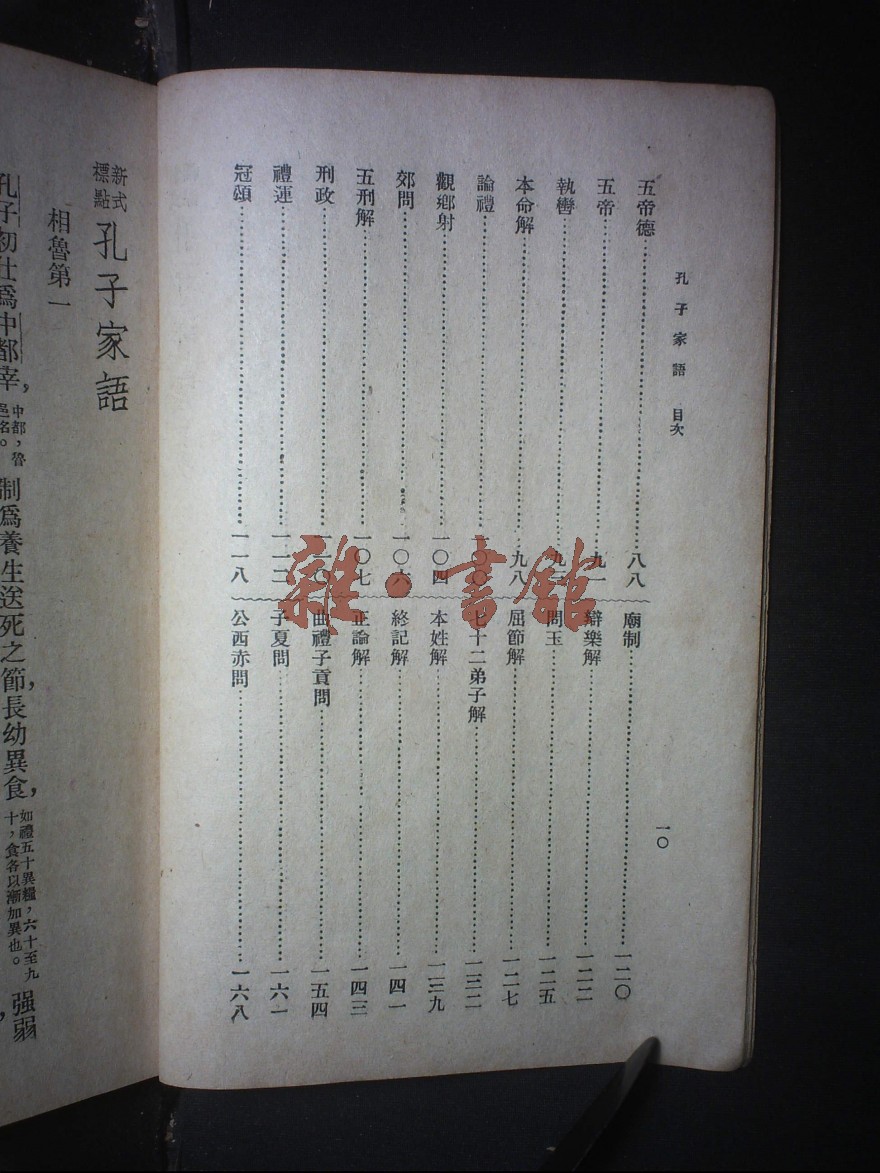 孔子家語 目次
一〇
五帝德……八八
五帝……九一
執轡……九
本命解……九八
論禮……一〇〇
觀鄉射……一〇四
郊問……一〇六
五刑解……一〇七
刑政……一一〇
禮運……一一二
冠頌……一一八
廟制……一二〇
辯樂解……一二二
問玉……一二五
屈節解……一二七
七十二弟子解……一三二
本姓解……一三九
終記解……一四一
正論解……一四三
曲禮子貢問……一五四
子夏問……一六一
公西赤問……一六八
新式標點 孔子家語
相魯第一
孔子初仕爲中都宰，中都，魯邑名。制爲養生送死之節，長幼異食，如禮五十異糧，六十至九十，食各以漸加異也。强弱
雜·書館